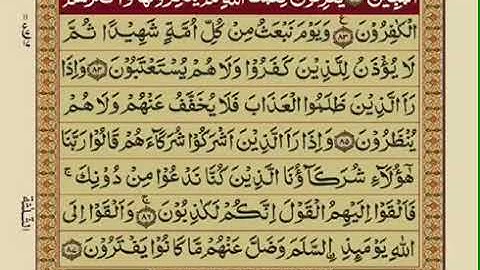 الْمُبِيْنُ يَعْرِفُوْنَ نِعْمَتَ اللّٰهِ ثُمَّ يُنْكِرُوْنَهَا وَاَكْثَرُهُمُ
الْكٰفِرُوْنَ ﴿۸۳﴾ ع وَيَوْمَ نَبْعَثُ مِنْ كُلِّ اُمَّةٍ شَهِيْدًا ثُمَّ
لَا يُؤْذَنُ لِلَّذِيْنَ كَفَرُوْا وَلَا هُمْ يُسْتَعْتَبُوْنَ ﴿۸۴﴾ وَاِذَا
رَاَ الَّذِيْنَ ظَلَمُوا الْعَذَابَ فَلَا يُخَفَّفُ عَنْهُمْ وَلَا هُمْ
يُنْظَرُوْنَ ﴿۸۵﴾ وَاِذَا رَاَ الَّذِيْنَ اَشْرَكُوْا شُرَكَآءَهُمْ قَالُوْا رَبَّنَا
هٰٓؤُلَآءِ شُرَكَآؤُنَا الَّذِيْنَ كُنَّا نَدْعُوْا مِنْ دُوْنِكَ ۚ
فَاَلْقَوْا اِلَيْهِمُ الْقَوْلَ اِنَّكُمْ لَكٰذِبُوْنَ ﴿۸۶﴾ۚ وَاَلْقَوْا اِلَى
اللّٰهِ يَوْمَئِذِ اِۨلسَّلَمَ وَضَلَّ عَنْهُمْ مَّا كَانُوْا يَفْتَرُوْنَ ﴿۸۷﴾